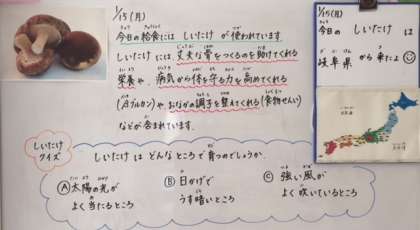 1/15(月)
今日の給食には しいたけ が 使われています
しいたけ には、丈夫な骨をつくるのを助けてくれる
栄養や、病気から体を守る力を高めてくれる
(βグルカン)や、おなかの調子を整えてくれる(食物せんい)
などが 含まれています。
しいたけ
クイズ
しいたけ は どんなところ で 育つのでしょうか。
Ⓐ 太陽の光が
よく 当たるところ
Ⓑ 日かげで
うす暗いところ
Ⓒ 強い風が
よく 吹いているところ
1/15(月)
今日の しいたけ は
岐阜県 から 来たよ